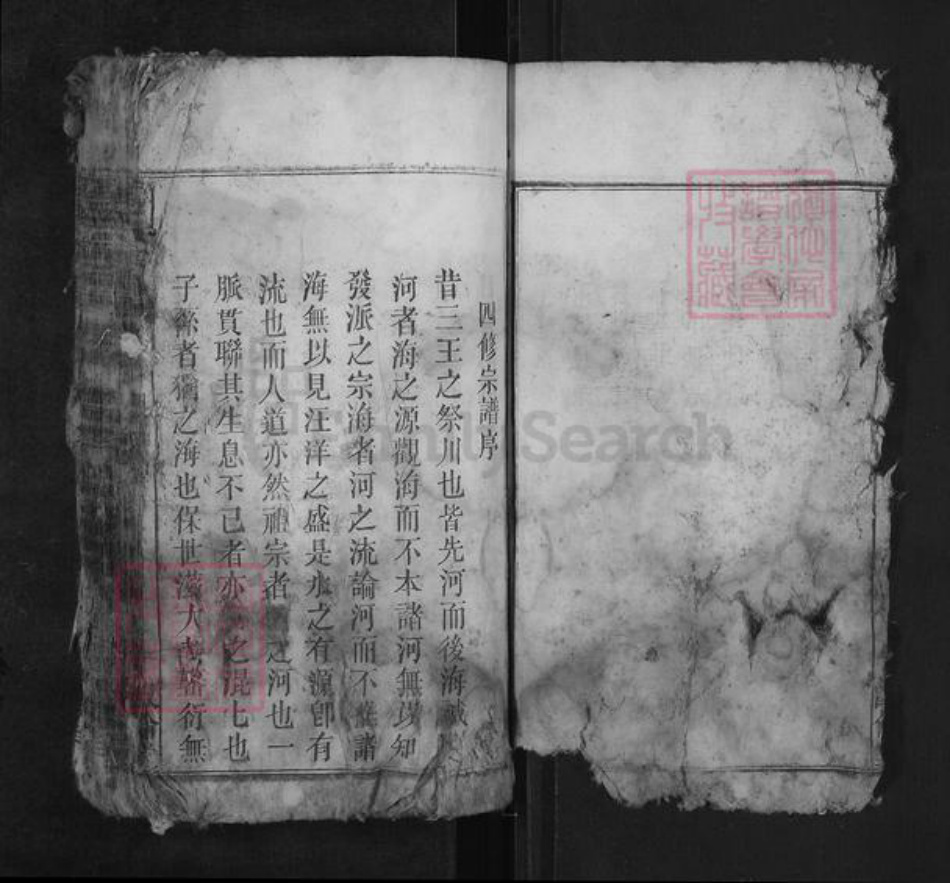 四修宗譜序
昔三王之祭川也皆先河而後海誠以
河者海之源觀海而不本諸河無以知
發派之宗海者河之流論河而不推諸
海無以見汪洋之盛是水之有源卽有
流也而人道亦然祖宗者之河也一
脈貫聯其生息不已者亦之混也
子孫者猶之海也保世滋大者衍無
FamilySearch